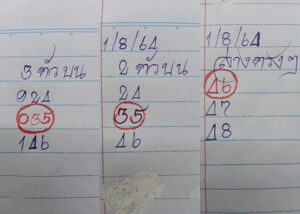 3 ตัวบน
924
035
146
1/8/64
2 ตัวบน
24
35
46
1/8/64
ล่างตรงๆ
46
47
48